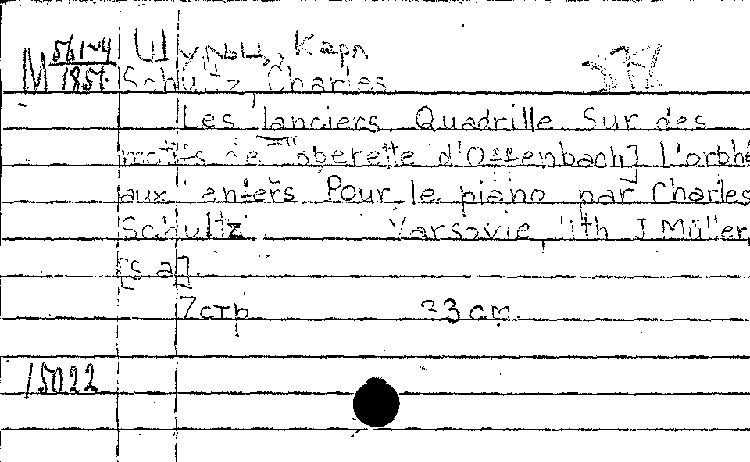 М 561-4/1857 Шульц, Карл
Schultz, Charles
Les lanciers Quadrille Sur des
motifs de l'operette d'Offenbach] L'orphé
aux enfers Pour le piano par Charles
Schultz. Varsovie, lith J. Müller,
[s a].
7 стр. 33 cm.
15022